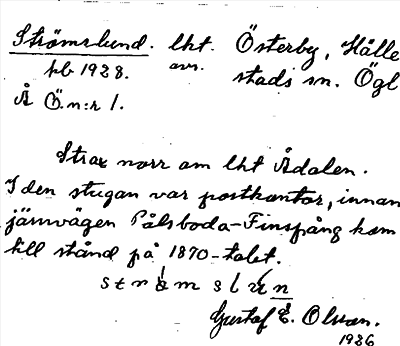 Strömslund. lht. Österby, Hälle
pb 1928. avs. stads sn. Ögl
Å Ö.n:r 1.
Strax norr om lht Ådalen.
I den stugan var postkontor, innan
järnvägen Pålsboda-Finspång kom
till stånd på 1870-talet.
Gustaf E. Olsson.
1926